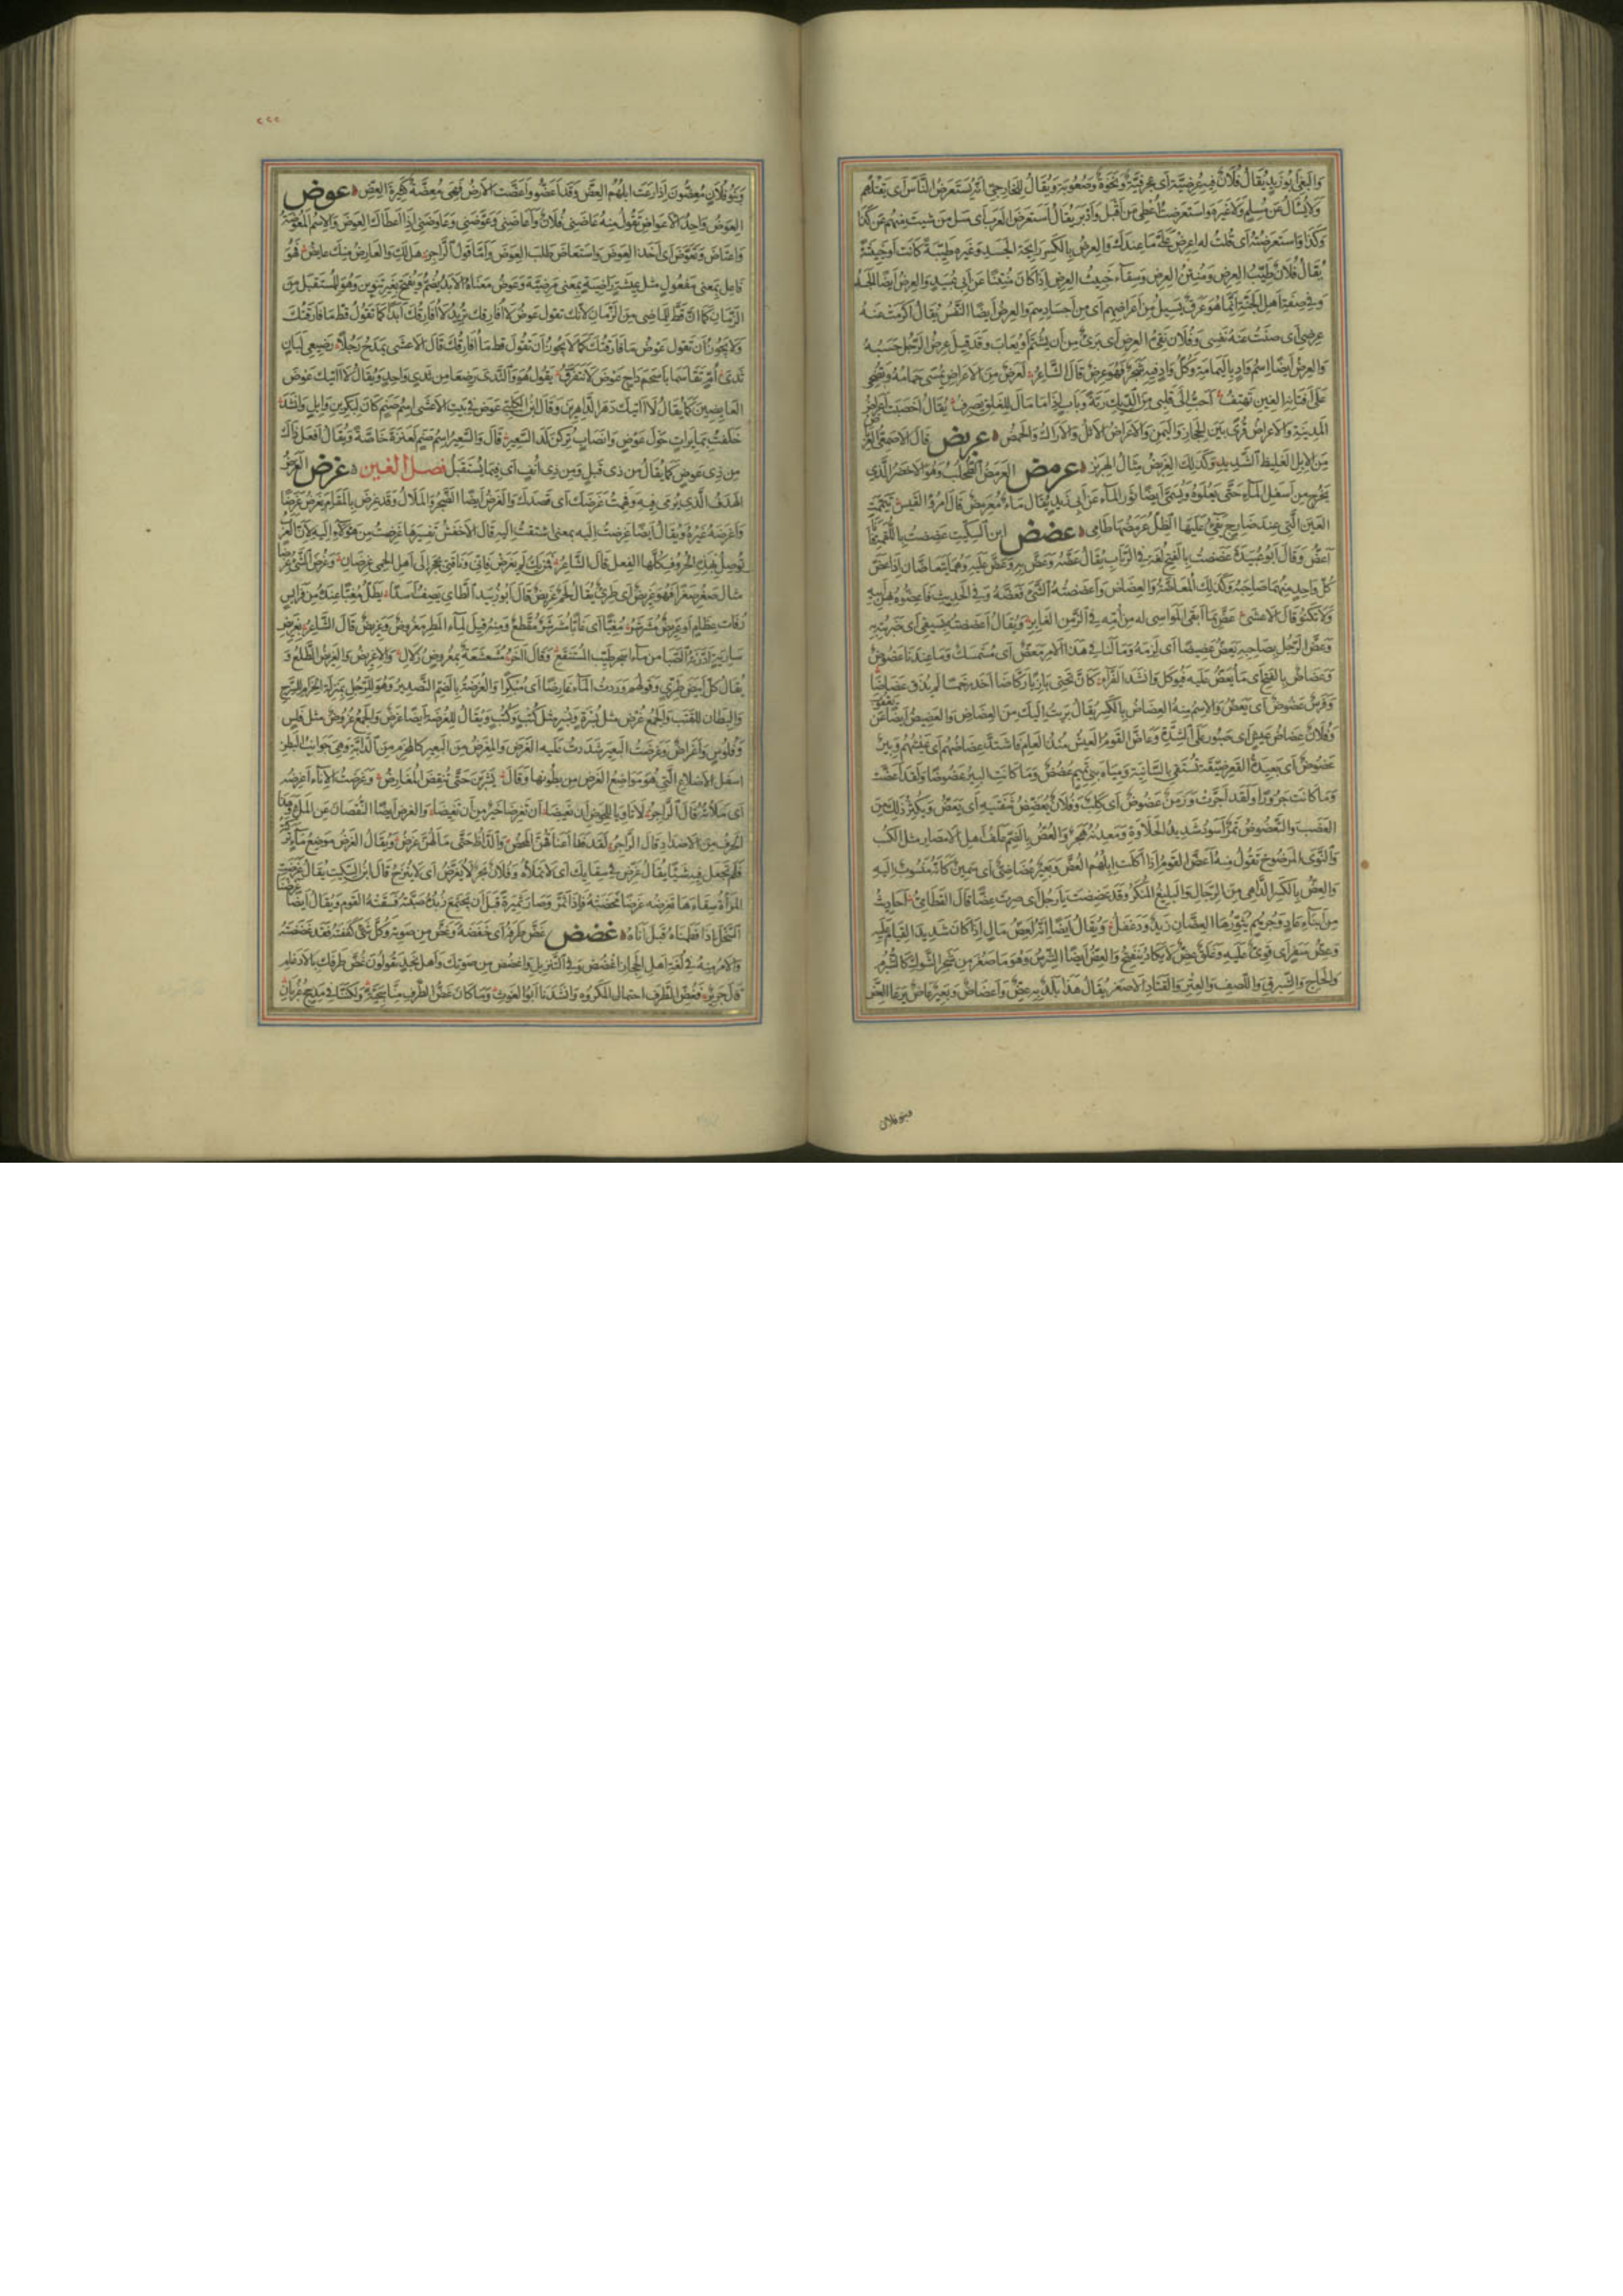 والبغى أبو زيد يقال فلان فيه عرضية أى عجرفية ونخوة وصعوبة ويقال للخارجى انه يستعرض الناس أى يقتلهم
ولا يسأل عن مسلم ولا غيره واستعرضت أعطى من أقبل وأدبر يقال استعرض العرب أى سل من شيت منهم عن كذا
وكذا واستعرضته أى قلت له اعرض على ما عندك والعرض بالكسر رايحة الجسد وغيره طيبة كانت أو خبيثة
يقال فلان طيب العرض ومنتن العرض وسقاء خبيث العرض إذا كان منتنا عن أبى عبيد والعرض أيضا الجسد
وفى صفة أهل الجنة إنما هو عرق يسيل من أعراضهم أى من أجسادهم والعرض أيضا النفس يقال أكرمت عنه
عرضى أى صنت عنه نفسى وفلان نقى العرض أى برئ من أن يشتم أو يعاب وقد قيل عرض الرجل حسبه
والعرض أيضا اسم واد باليمامة وكل واد فيه شجر فهو عرض قال الشاعر لعرض من الأعراض تمسى حمامه وتضحى
على أفنانه العين تهتف أحب إلى قلبى من الديك رنة وباب إذا ما مال للغلق يصرف يقال أخصبت أعراض
المدينة والأعراض قرى بين الحجاز واليمن والأعراض الأثل والأراك والحمض عربض قال الأصمعى العربض
من الإبل الغليظ الشديد وكذلك العرباض مثال الهزبر عرمض العرمض الطحلب وهو الأخضر الذى
يخرج من أسفل الماء حتى يعلوه ويسمى أيضا ثور الماء عن أبى زيد يقال ماء معرمض قال امرؤ القيس تيممت
العين التى عند ضارج يفئ عليها الظل عرمضها طامى عضض ابن السكيت عضضت باللقمة فأنا
أعض وقال أبو عبيدة عضضت بالفتح لغة فى الرباب يقال عضه وعض به وعض عليه وهما يتعاضان إذا عض
كل واحد منهما صاحبه وكذلك المعاضة والعضاض وأعضضته الشئ فعضه وفى الحديث فأعضوه بهن أبيه
ولا تكنوا قال الأعشى عض بما أبقى المواسى له من أمه فى الزمن الغابر ويقال أعضضته بسيفى أى ضربته به
وعض الرجل بصاحبه يعض عضيضا أى لزمه وما لنا فى هذا الأمر معض أى مستمسك وما عندنا عضوض
وعضاض بالفتح أى ما يعض عليه فيوكل وأنشد الفراء كأن تحتى بازيا ركاضا أخدر خمسا لم يذق عضاضا
وفرس عضوض أى يعض والاسم منه العضاض بالكسر يقال بريت إليك من العضاض والعضيض أيضا
وفلان عضاض عيش أى صبور على الشدة وعاض القوم العيش منذ العام فاشتد عضاضهم أى عيشهم وبير
عضوض أى بعيدة القعر ضيقة تستقى بالسانية ومياه بنى تميم عضض وما كانت البير عضوضا ولقد أعضت
وما كانت جرورا ولقد أجرت وزمن عضوض أى كلب وفلان يعضض شفتيه أى يعض ويكثر ذلك من
الغضب والتعضوض تمر أسود شديد الحلاوة ومعدنه هجر والعض بالضم علف أهل الأمصار مثل الكسب
والنوى المرضوخ تقول منه أعض القوم إذا أكلت إبلهم العض وبعير عضاضى أى سمين كأنه منسوب إليه
والعض بالكسر الداهى من الرجال والبليغ المنكر وقد عضضت يا رجل أى صرت عضا قال القطامى أحاديث
من أنباء عاد وجرهم يثورها العضان زيد ودغفل ويقال أيضا إنه لعض مال إذا كان شديد القيام عليه
وعض سفر أى قوى عليه وغلق عض لا يكاد ينفتح والعض أيضا الشرس وهو ما صغر من شجر الشوك كالشبرم
والحاج والشبرق واللصف والعتر والقتاد الأصغر يقال هذا بلد به عض وأعضاض وبعير عاض يرعى العض
فبنو فلان
٢٢٢
وبنو فلان معضون إذا رعت إبلهم العض وقد أعضوا وأعضت الأرض فهى معضة كثيرة العض عوض
العوض واحد الأعواض تقول منه عاضنى فلان وأعاضنى وعوضنى وعاوضنى إذا أعطاك العوض والاسم المعوضة
واعتاض وتعوض أى أخذ العوض واستعاض طلب العوض وأما قول الراجز هل لك والعارض منك عايض فهو
فاعل بمعنى مفعول مثل عيشة راضية بمعنى مرضية وعوض معناه الأبد يضم ويفتح بغير تنوين وهو للمستقبل من
الزمان كما أن قط للماضى من الزمان لأنك تقول عوض لا أفارقك تريد لا أفارقك أبدا كما تقول قط ما فارقتك
ولا يجوز أن تقول عوض ما فارقتك كما لا يجوز أن تقول قط ما أفارقك قال الأعشى يمدح رجلا رضيعى لبان
ثدى أم تقاسما بأسحم داج عوض لا نتفرق يقول هو والندى رضعا من ثدى واحد ويقال لا آتيك عوض
العايضين كما يقال لا آتيك دهر الداهرين وقال ابن الكلبى عوض فى بيت الأعشى اسم صنم كان لبكر بن وايل وأنشد
حلفت بمايرات حول عوض وأنصاب تركن لدى السعير قال والسعير اسم صنم لعنزة خاصة ويقال افعل ذاك
من ذى عوض كما يقال من ذى قبل ومن ذى أنف أى فيما يستقبل فصل الغين غرض الغرض
الهدف الذى يرمى فيه وفهمت غرضك أى قصدك والغرض أيضا الضجر والملال وقد غرض بالمقام يغرض غرضا
وأغرضه غيره ويقال أيضا غرضت إليه بمعنى اشتقت إليه قال الأخفش تفسيرها غرضت من هؤلاء إليه لأن العرب
توصل بهذه الحروف كلها الفعل قال الشاعر فمن يك لم يغرض فإنى وناقتى بحجر إلى أهل الحمى غرضان وغرض الشئ غرضا
مثال صغر صغرا فهو غريض أى طرى يقال لحم غريض قال أبو زبيد الطائى يصف أسدا يظل مغبا عنده من فرايس
رفات عظام أو غريض مشرشر مغبا أى غابا مشرشر مقطع ومنه قيل لماء المطر مغروض وغريض قال الشاعر بغريض
سارية أدرته الصبا من ماء أسجر طيب المستنقع وقال آخر مشعشعة بمغروض زلال والإغريض والغريض الطلع و
يقال كل أبيض طرى وقولهم وردت الماء غارضا أى مبكرا والغرضة بالضم التصدير وهو للرحل بمنزلة الحزام للسرج
والبطان للقتب والجمع غرض مثل بسرة وبسر مثل كتب وكتب ويقال للغرضة أيضا غرض والجمع غروض مثل فلس
وفلوس وأغراض وغرضت البعير شددت عليه الغرض والمغرض من البعير كالمحزم من الدابة وهى جوانب البطن
أسفل الأضلاع التى هو مواضع الغرض من بطونها وقال يشربن حتى تنقض المغارض وغرضت الإناء أغرضه
أى ملأته قال الراجز لا تأويا للحوض أن يغيضا أن تغرضا خير من أن تغيضا والغرض أيضا النقصان عن الملء وهذا
الحرف من الأضداد قال الراجز لقد فدى أعناقهن المحض والدأظ حتى ما لهن غرض ويقال الغرض موضع ماء تركته
فلم تجعل فيه شيئا يقال غرض فى سقايك أى لا تملأه وفلان بحر لا يغرض أى لا ينزح قال ابن السكيت يقال غرضت
المرأة سقاءها تغرضه غرضا مخضته فإذا ثمر وصار ثميرة قبل أن يجتمع زبده صبته فسقته القوم ويقال أيضا غرضنا
السخل إذا فطمناه قبل إناه غضض غض طرفه أى خفضه وغض من صوته وكل شئ كففته فقد غضضته
والأمر منه فى لغة أهل الحجاز اغضض وفى التنزيل واغضض من صوتك وأهل نجد يقولون غض طرفك بالإدغام
قال جرير فغض الطرف احتمال المكروه وأنشدنا أبو الغوث وما كان غض الطرف منا سجية ولكننا فى مذحج غربان